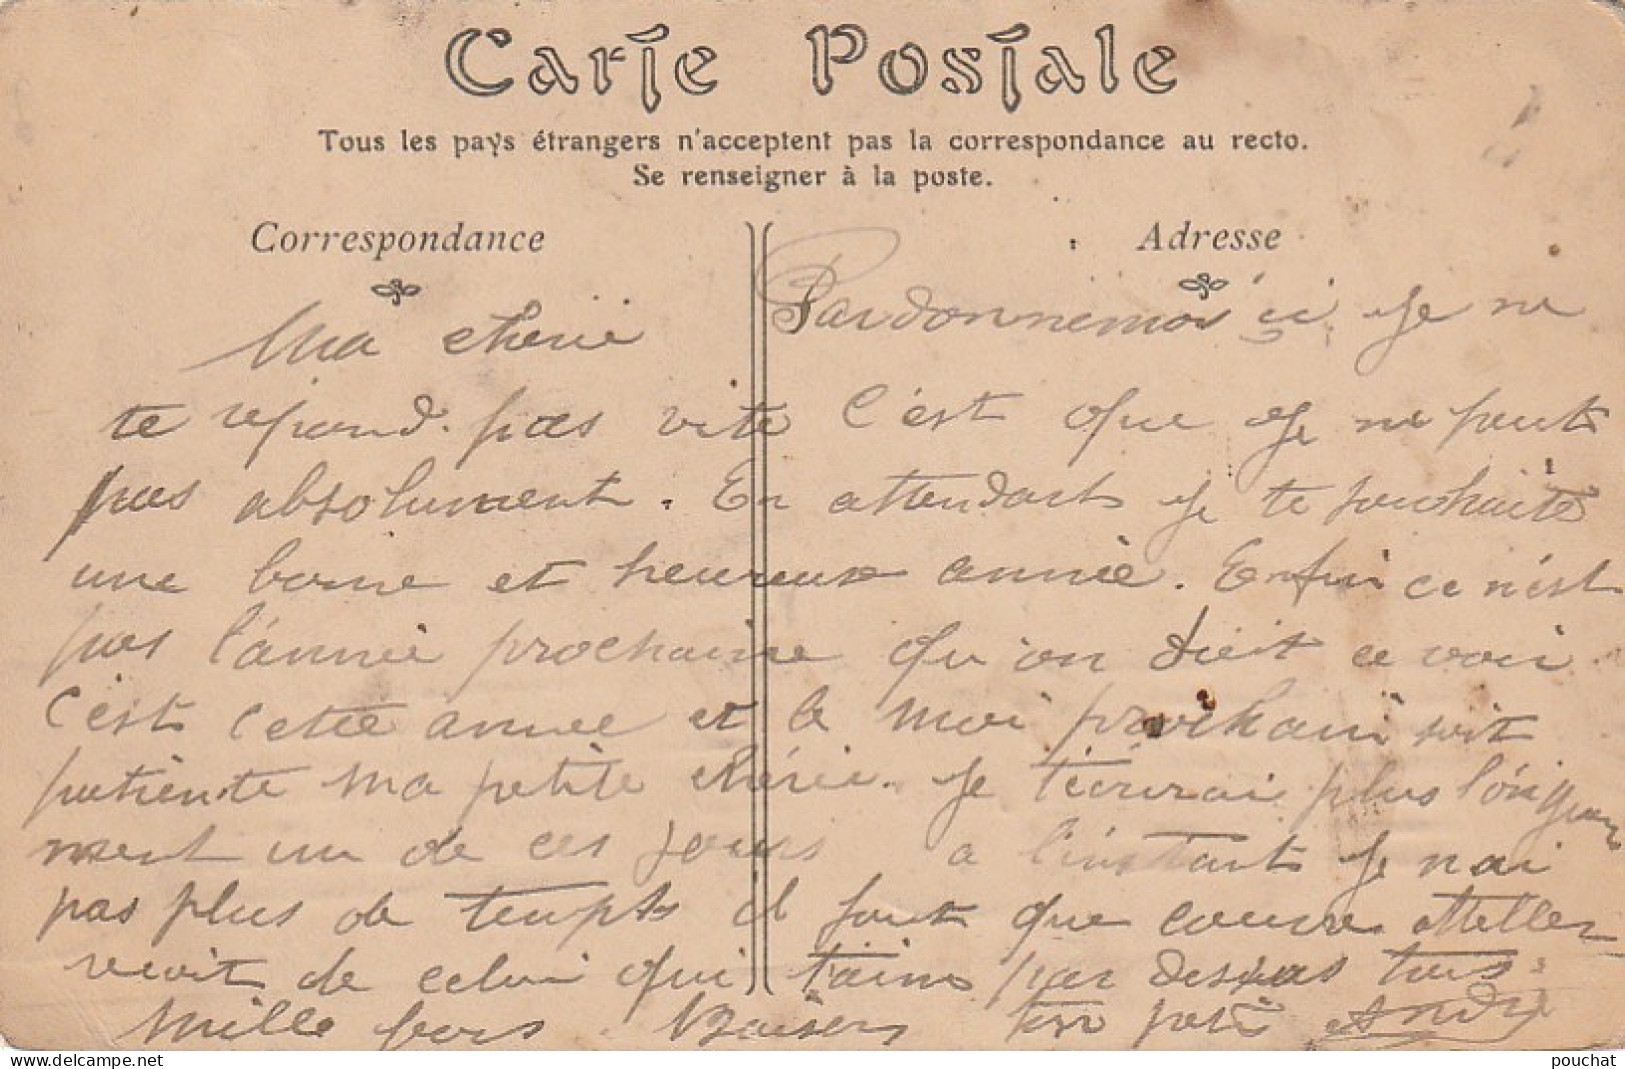 Carte Postale
Tous les pays étrangers n'acceptent pas la correspondance au recto.
Se renseigner à la poste.
Correspondance
Adresse
Ma cherie Pardonnemoi si Je ne
te repond pas vite C'est que Je ne peut
pas absolument. En attendant je te souhaite
une bonne et heureuse année. Enfin ce n'est
pas l'année prochaine qu'on doit ce voir
C'est cette année et le moi prochain soit
patiente ma petite chérie. Je t'écrirai plus longue
ment un de ces jours a l'instant Je nai
pas plus de temps il faut que coure atteller
recoit de celui qui t'aime par dessus tous
Mille gros Baisers ton petit André
pouchat